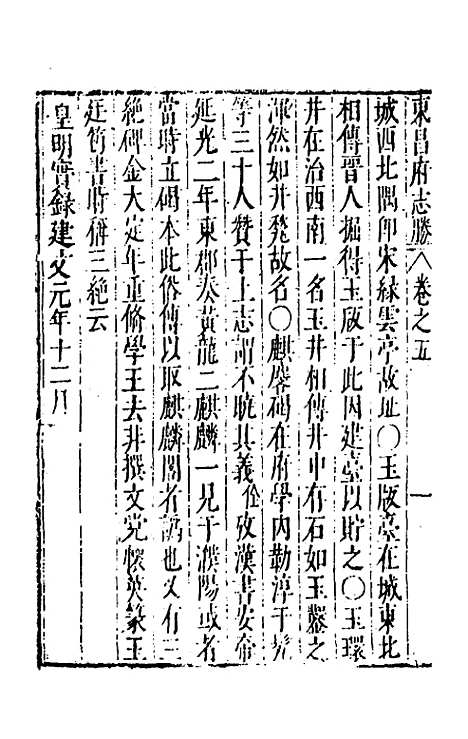 東昌府志勝 卷之五 一
城西北隅卽宋綠雲亭故址〇玉版臺在城東北
相傳晉人掘得玉版于此因建臺以貯之〇玉環
井在治西南一名玉井相傳井中有石如玉甃之
渾然如井甃故名〇麒麟碣在府學內勒淳于髠
等三十人贊于上志謂不曉其義 攷漢書安帝
延光二年東郡奏黃龍二麒麟一見于濮陽或者
當時立碣本此俗傳以取麒麟閣者謬也又有三
絶碑金大定年重脩學王去非撰文党懷英篆王
廷筠書時稱三絶云
皇明實錄建文元年十二月